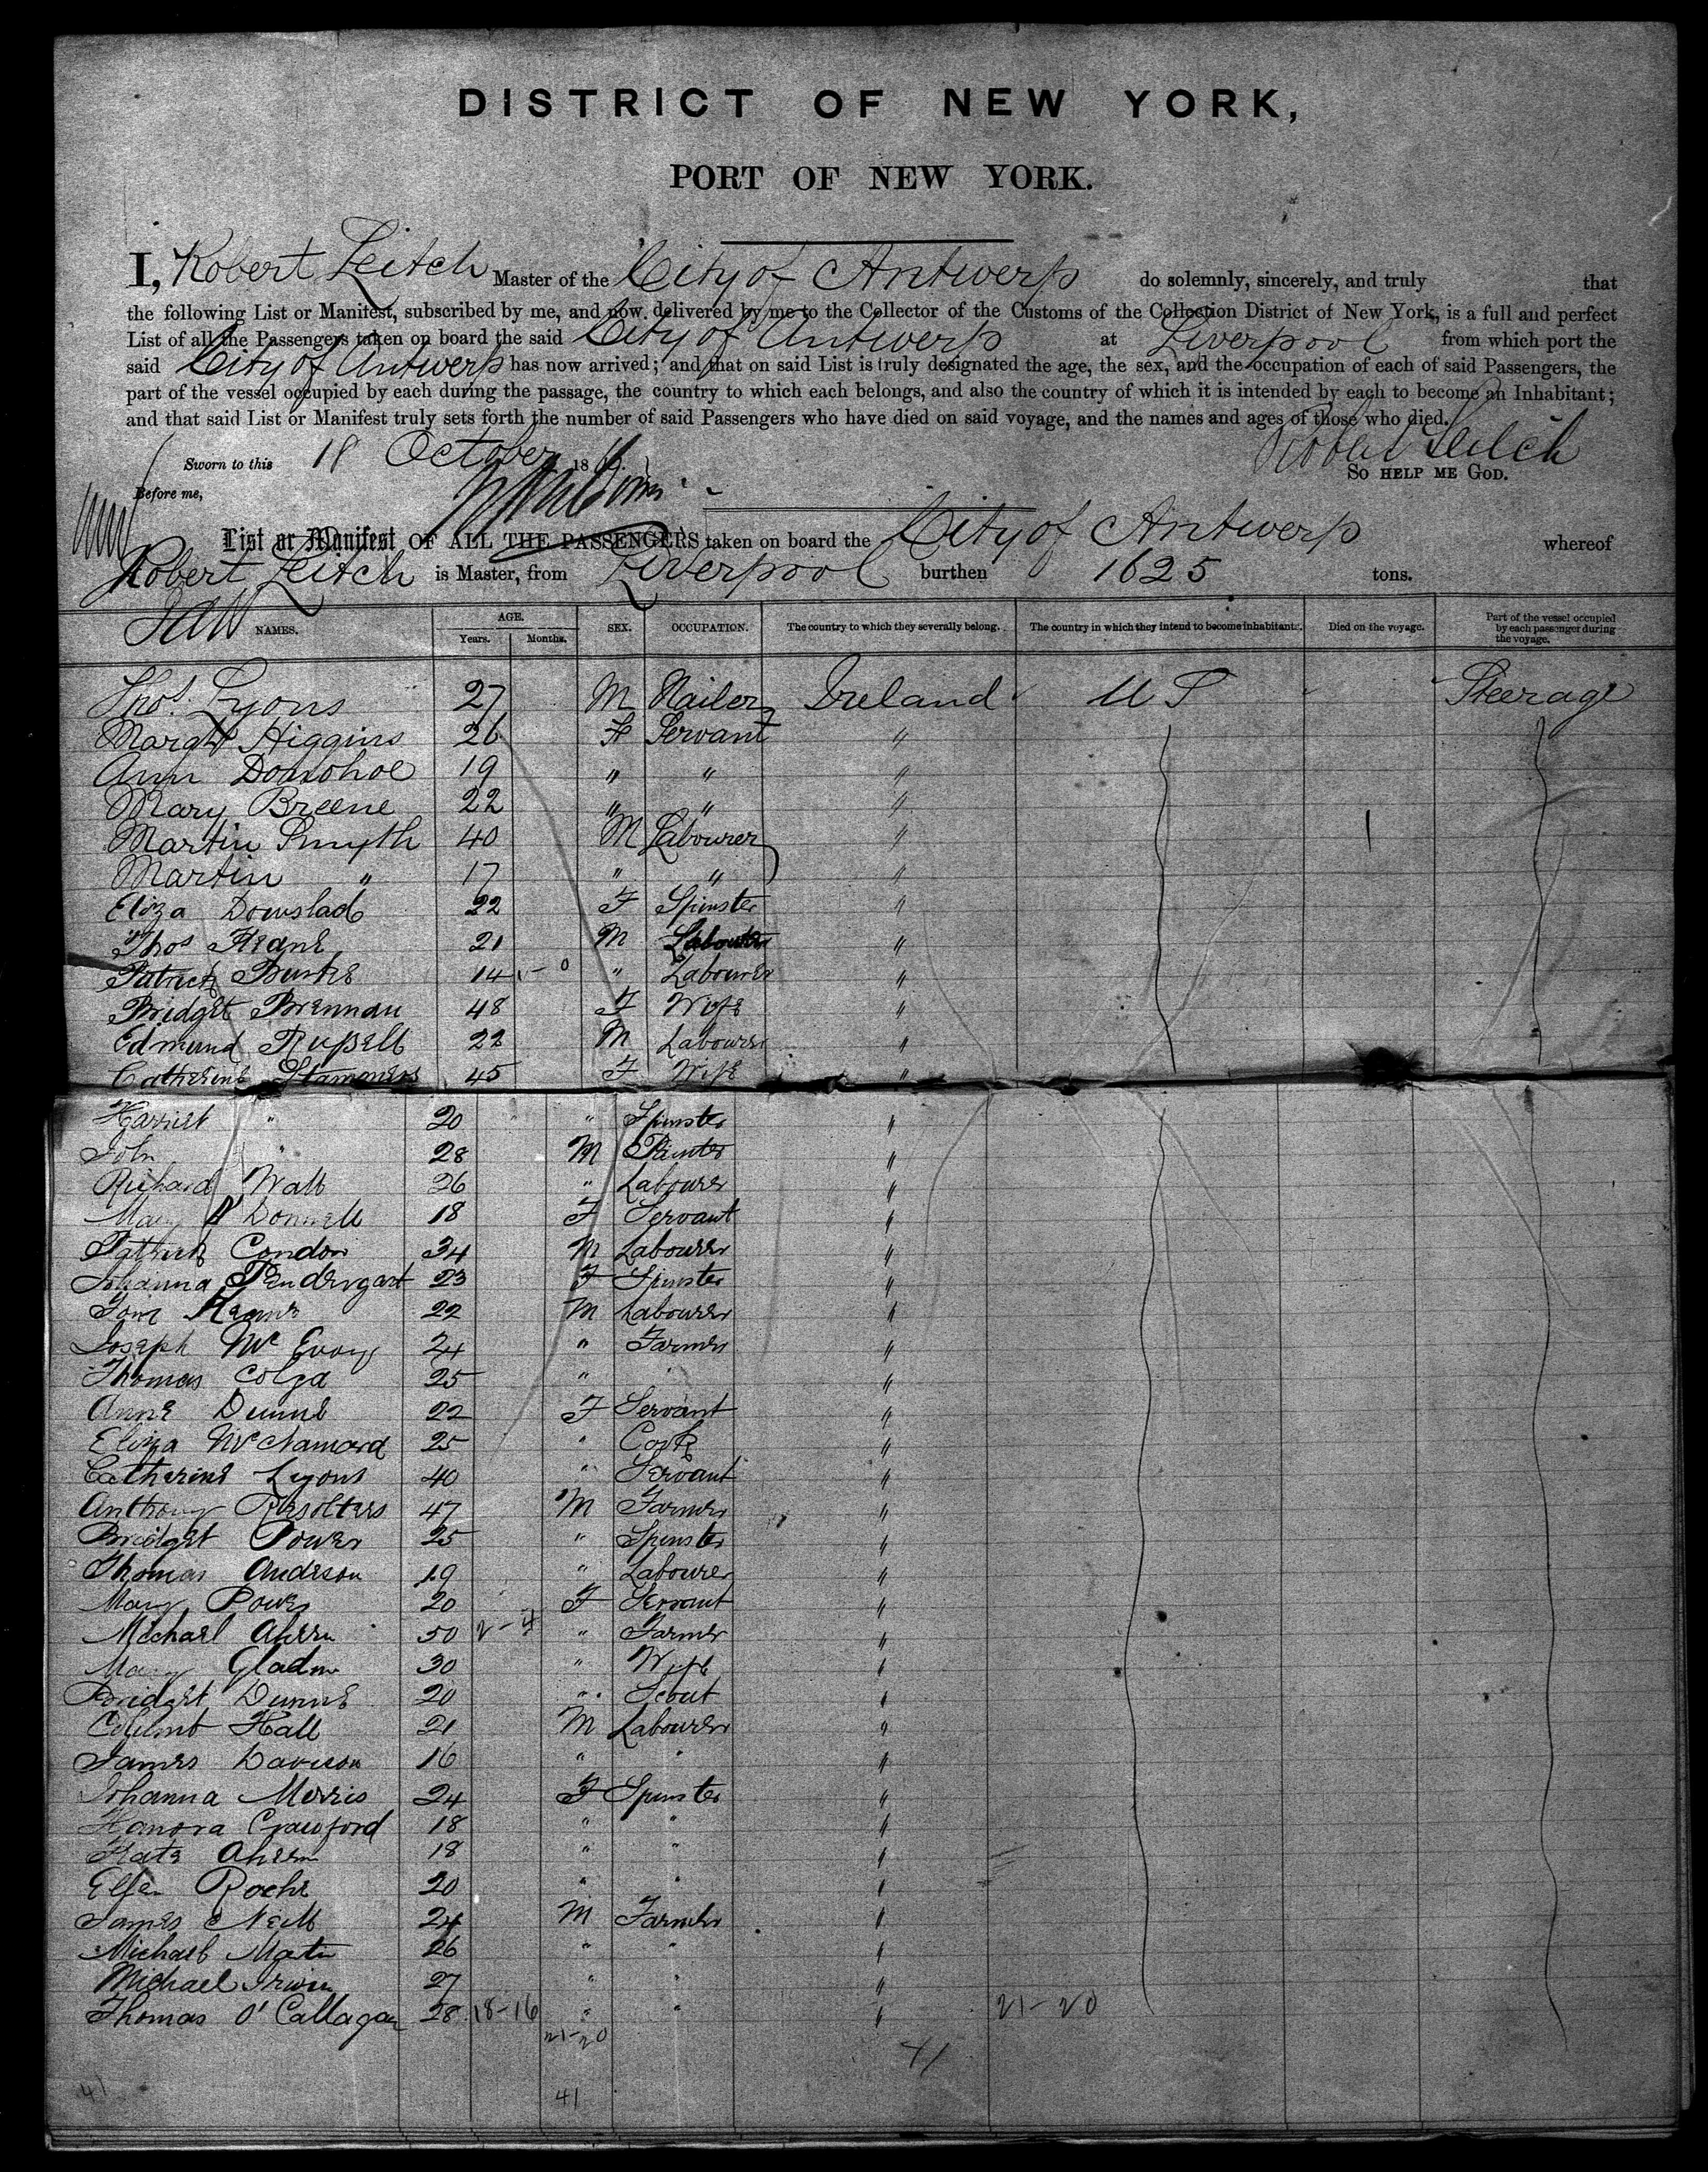 DISTRICT OF NEW YORK,
PORT OF NEW YORK.
I, Robert Leitch Master of the City of Antwerp do solemnly, sincerely, and truly that
the following List or Manifest, subscribed by me, and now delivered by me to the Collector of the Customs of the Collection District of New York, is a full and perfect
List of all the Passengers taken on board the said City of Antwerp at Liverpool from which port the
said City of Antwerp has now arrived; and that on said List is truly designated the age, the sex, and the occupation of each of said Passengers, the
part of the vessel occupied by each during the passage, the country to which each belongs, and also the country of which it is intended by each to become an Inhabitant;
and that said List or Manifest truly sets forth the number of said Passengers who have died on said voyage, and the names and ages of those who died.
Robert Leitch
Sworn to this 18 October 18
So HELP ME GOD.
Before me,
List or Manifest OF ALL THE PASSENGERS taken on board the City of Antwerp whereof
Robert Leitch is Master, from Liverpool burthen 1625 tons.
NAMES. AGE. Years. Months. SEX. OCCUPATION. The country to which they severally belong. The country in which they intend to become inhabitants. Died on the voyage. Part of the vessel occupied by each passenger during the voyage.
Thos. Lyons 27 M Nailer Ireland U S Steerage
Margt Higgins 26 F Servant "
Ann Donohoe 19 " " "
Mary Breene 22 " " "
Martin Smyth 40 M Labourer "
Martin " 17 " " "
Eliza 22 F Spinster "
Thos Keane 21 M Labourer "
Patrick Burke 14 " Labourer "
Bridget Brennan 48 F Wife "
Edmund Russell 22 M Labourer "
Catherine 45 F Wife "
Harriet " 20 " Spinster "
John " 28 M "
Richard Wall 26 " Labourer "
Mary O'Donnell 18 F Servant "
Patrick Condon 34 M Labourer "
Johanna Pendergast 23 F Spinster "
22 M Labourer "
Joseph McEvoy 24 " Farmer "
Thomas Colga 25 " " "
Anne Dunne 22 F Servant "
Eliza McNamard 25 " Cook "
Catherine Lyons 40 " Servant "
Anthony 47 M Farmer "
Bridget Power 25 " Spinster "
Thomas Anderson 19 " Labourer "
Mary Power 20 F Servant "
Michael Ahern 50 2-4 " Farmer "
Mary 30 " Wife "
Bridget Dunne 20 " "
Hall 21 M Labourer "
James Davison 16 " " "
Johanna Morris 24 F Spinster "
Hanora Crawford 18 " " "
Kate Ahern 18 " " "
Ellen Roche 20 " " "
James Neill 24 M Farmer "
Michael 26 " " "
Michael Irwin 27 " " "
Thomas O'Callagan 28 18-16 " " " 21-20
21-20
41
41 41